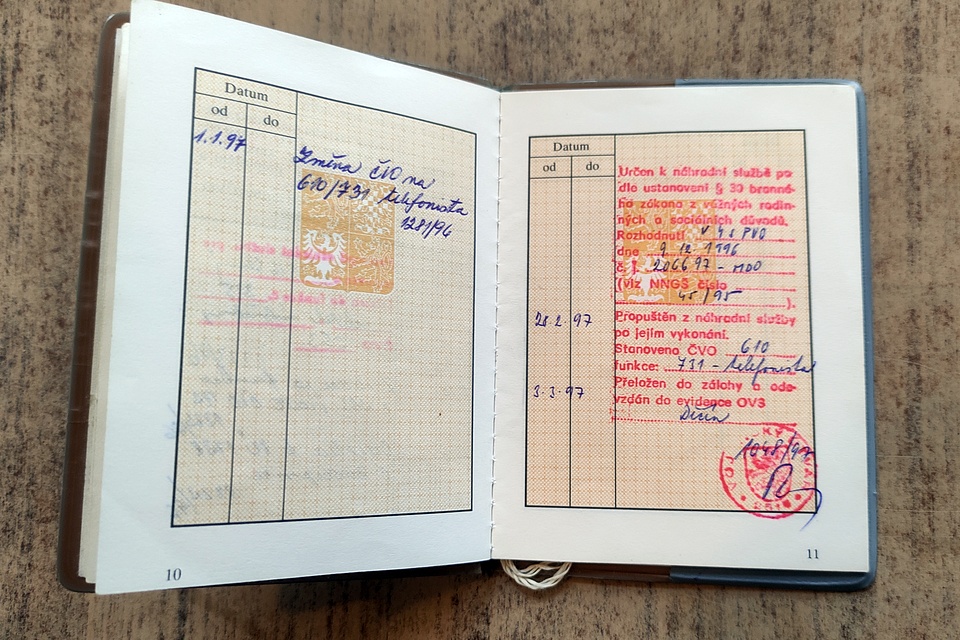 Datum
od do
1.1.97
Změna ČVO na
610/731 telefonista
1281/96
10
Datum
od do
Určen k náhradní službě po-
dle ustanovení § 30 branné-
ho zákona z vážných rodin-
ných a sociálních důvodů.
Rozhodnutí PVO
dne 9. 12. 1996
č. j. 20667 97 - MDO
(viz NNGŠ číslo
45/95 ).
28.2.97 Propuštěn z náhradní služby
po jejím vykonání.
Stanoveno ČVO 610
funkce: 731 - telefonista
3.3.97 Přeložen do zálohy a ode-
vzdán do evidence OVS
Děčín
1048/97
11